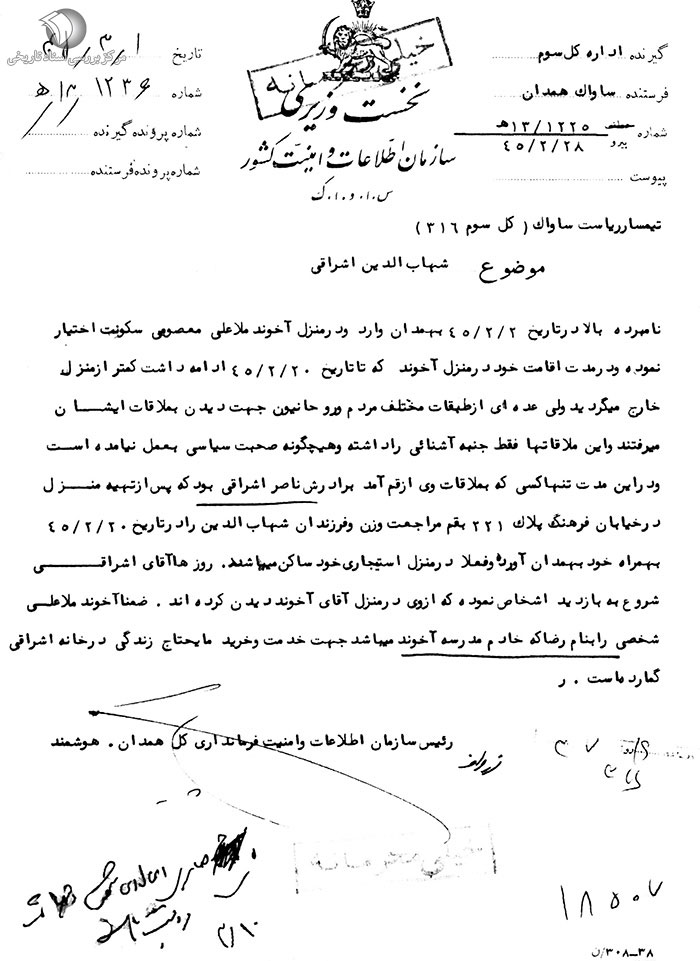 مرکز بررسی اسناد تاریخی
گیرنده اداره کل سوم
فرستنده ساواک همدان
شماره ۱۳/۱۲۲۵هـ
پیرو ۴۵/۲/۲۸
پیوست
نخست وزیری
سازمان اطلاعات و امنیت کشور
س.ا.و.ا.ک
تاریخ
شماره ۱۲۳۶
شماره پرونده گیرنده
شماره پرونده فرستنده
تیمسار ریاست ساواک ( کل سوم ۳۱۶ )
موضوع شهاب الدین اشراقی
نامبرده بالا در تاریخ ۴۵/۲/۲ بهمدان وارد و در منزل آخوند ملاعلی معصومی سکونت اختیار
نموده و در مدت اقامت خود در منزل آخوند که تا تاریخ ۴۵/۲/۲۰ ادامه داشت کمتر از منزل
خارج میگردید ولی عده ای از طبقات مختلف مردم و روحانیون جهت دیدن بملاقات ایشان
میرفتند و این ملاقاتها فقط جنبه آشنائی را داشته و هیچگونه صحبت سیاسی بعمل نیامده است
و در این مدت تنها کسی که بملاقات وی از قم آمد برادرش ناصر اشراقی بود که پس از تهیه منزل
در خیابان فرهنگ پلاک ۲۲۱ بقم مراجعت و زن و فرزندان شهاب الدین را در تاریخ ۴۵/۲/۲۰
بهمراه خود بهمدان آورده و فعلا در منزل استیجاری خود ساکن میباشند. روزها آقای اشراقی
شروع به بازدید اشخاص نموده که از وی در منزل آقای آخوند دیدن کرده اند . ضمنا آخوند ملاعلی
شخصی را بنام رضا که خادم مدرسه آخوند میباشد جهت خدمت و خرید مایحتاج زندگی در خانه اشراقی
گمارده است . ر
رئیس سازمان اطلاعات و امنیت فرمانداری کل همدان . هوشمند
۱۸۵۰۷
۳۸-۳۰۸/ن